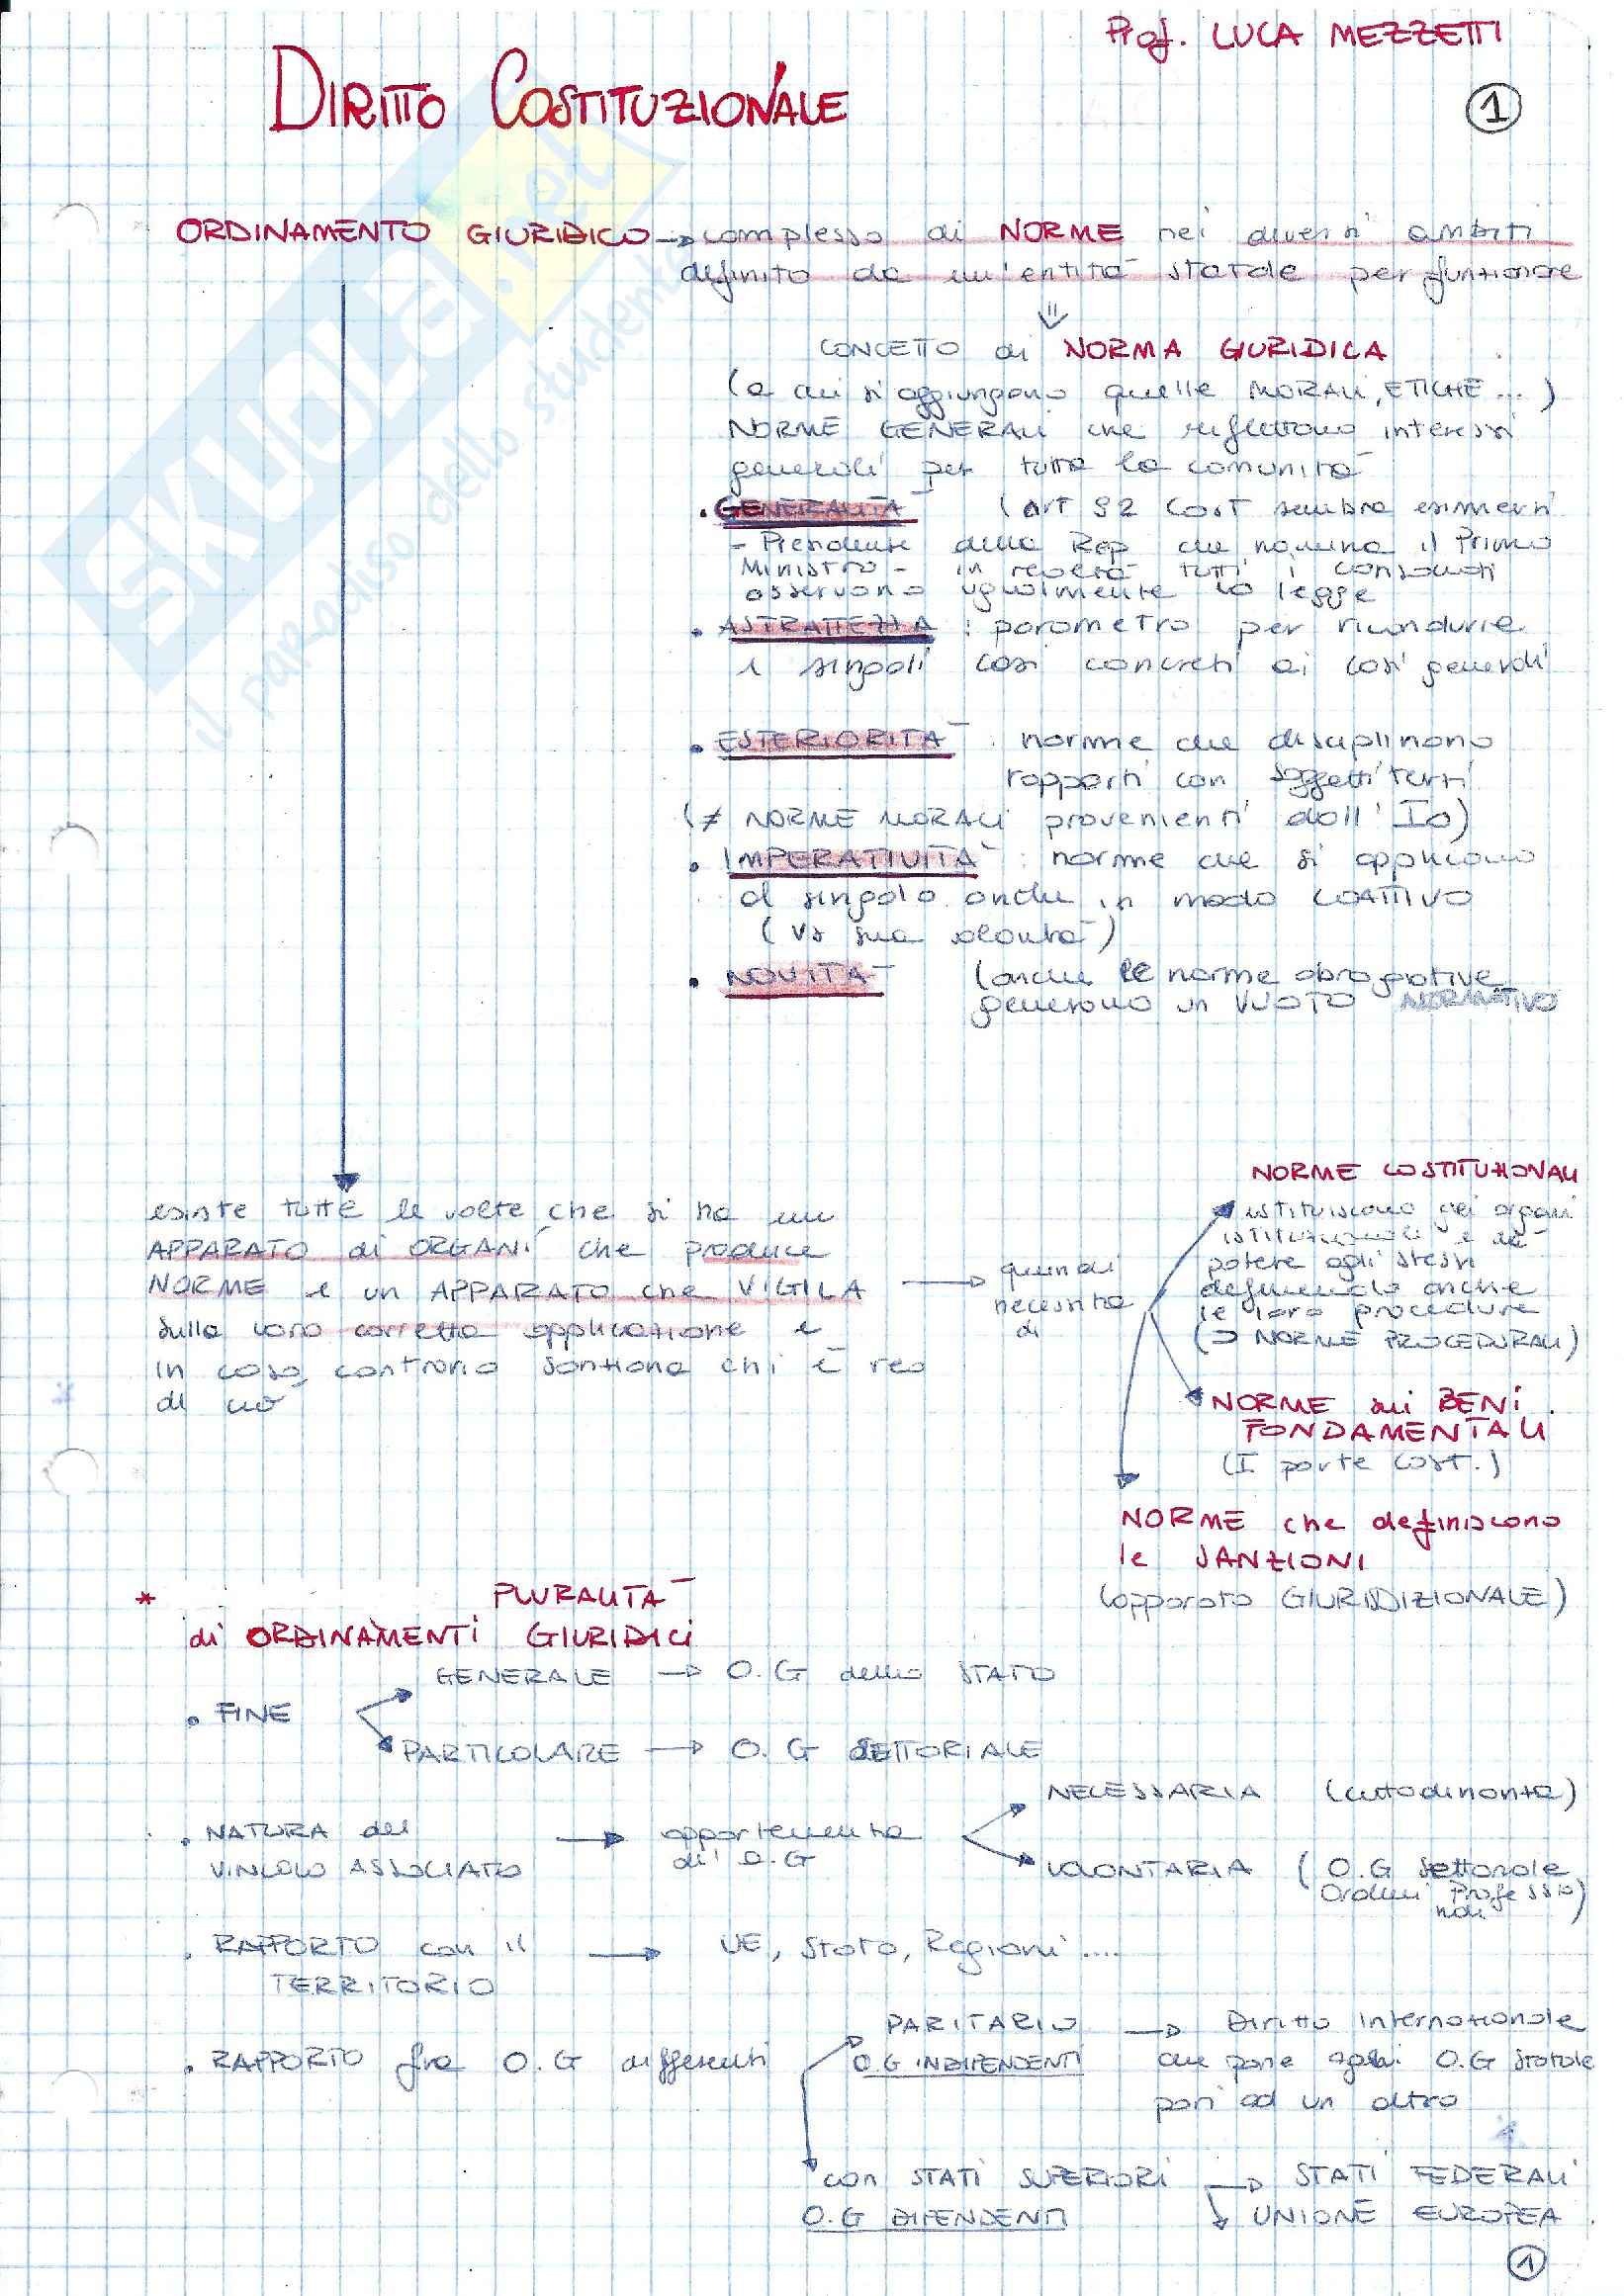 Prof. LUCA MEZZETTI
DIRITTO COSTITUZIONALE
1
SKUOLA.net
il paradiso dello studente
ORDINAMENTO GIURIDICO → complesso di NORME nei diversi ambiti
definito da un'entità statale per funzionare
⇓
CONCETTO di NORMA GIURIDICA
(a cui si aggiungono quelle MORALI, ETICHE...)
NORME GENERALI che riflettono interessi
generali per tutta la comunità
• GENERALITÀ (Art 92 Cost sembra esimersi
- Presidente della Rep che nomina il Primo
Ministro - in realtà tutti i consociati
osservano ugualmente la legge
• ASTRATTEZZA : parametro per ricondurre
i singoli casi concreti ai casi generali
• ESTERIORITÀ : norme che disciplinano
rapporti con soggetti terzi
(≠ NORME MORALI provenienti dall'Io)
• IMPERATIVITÀ : norme che si applicano
al singolo anche in modo COATTIVO
(vs sua volontà)
• NOVITÀ (anche le norme abrogative
generano un VUOTO NORMATIVO
esiste tutte le volte che si ha un
APPARATO di ORGANI che produce
NORME e un APPARATO che VIGILA
sulla loro corretta applicazione e
in caso contrario sanziona chi è reo
di ciò
→ quindi
necessita
di
NORME COSTITUZIONALI
istituiscono gli organi
istituzionali e dà
potere agli stessi
definendo anche
le loro procedure
(⊃ NORME PROCEDURALI)
NORME sui BENI
FONDAMENTALI
(I parte Cost.)
NORME che definiscono
le SANZIONI
(apparato GIURISDIZIONALE)
* PLURALITÀ
di ORDINAMENTI GIURIDICI
GENERALE → O.G dello STATO
• FINE
PARTICOLARE → O.G SETTORIALE
NECESSARIA (cittadinanza)
• NATURA del → appartenenza
VINCOLO ASSOCIATO di O.G
VOLONTARIA (O.G settoriale
Ordini Professio
nali)
• RAPPORTO con il → UE, Stato, Regioni ....
TERRITORIO
PARITARIO → Diritto internazionale
• RAPPORTO fra O.G differenti O.G INDIPENDENTI che pone ogni O.G statale
pari ad un altro
con STATI SUPERIORI → STATI FEDERALI
O.G DIPENDENTI UNIONE EUROPEA
1